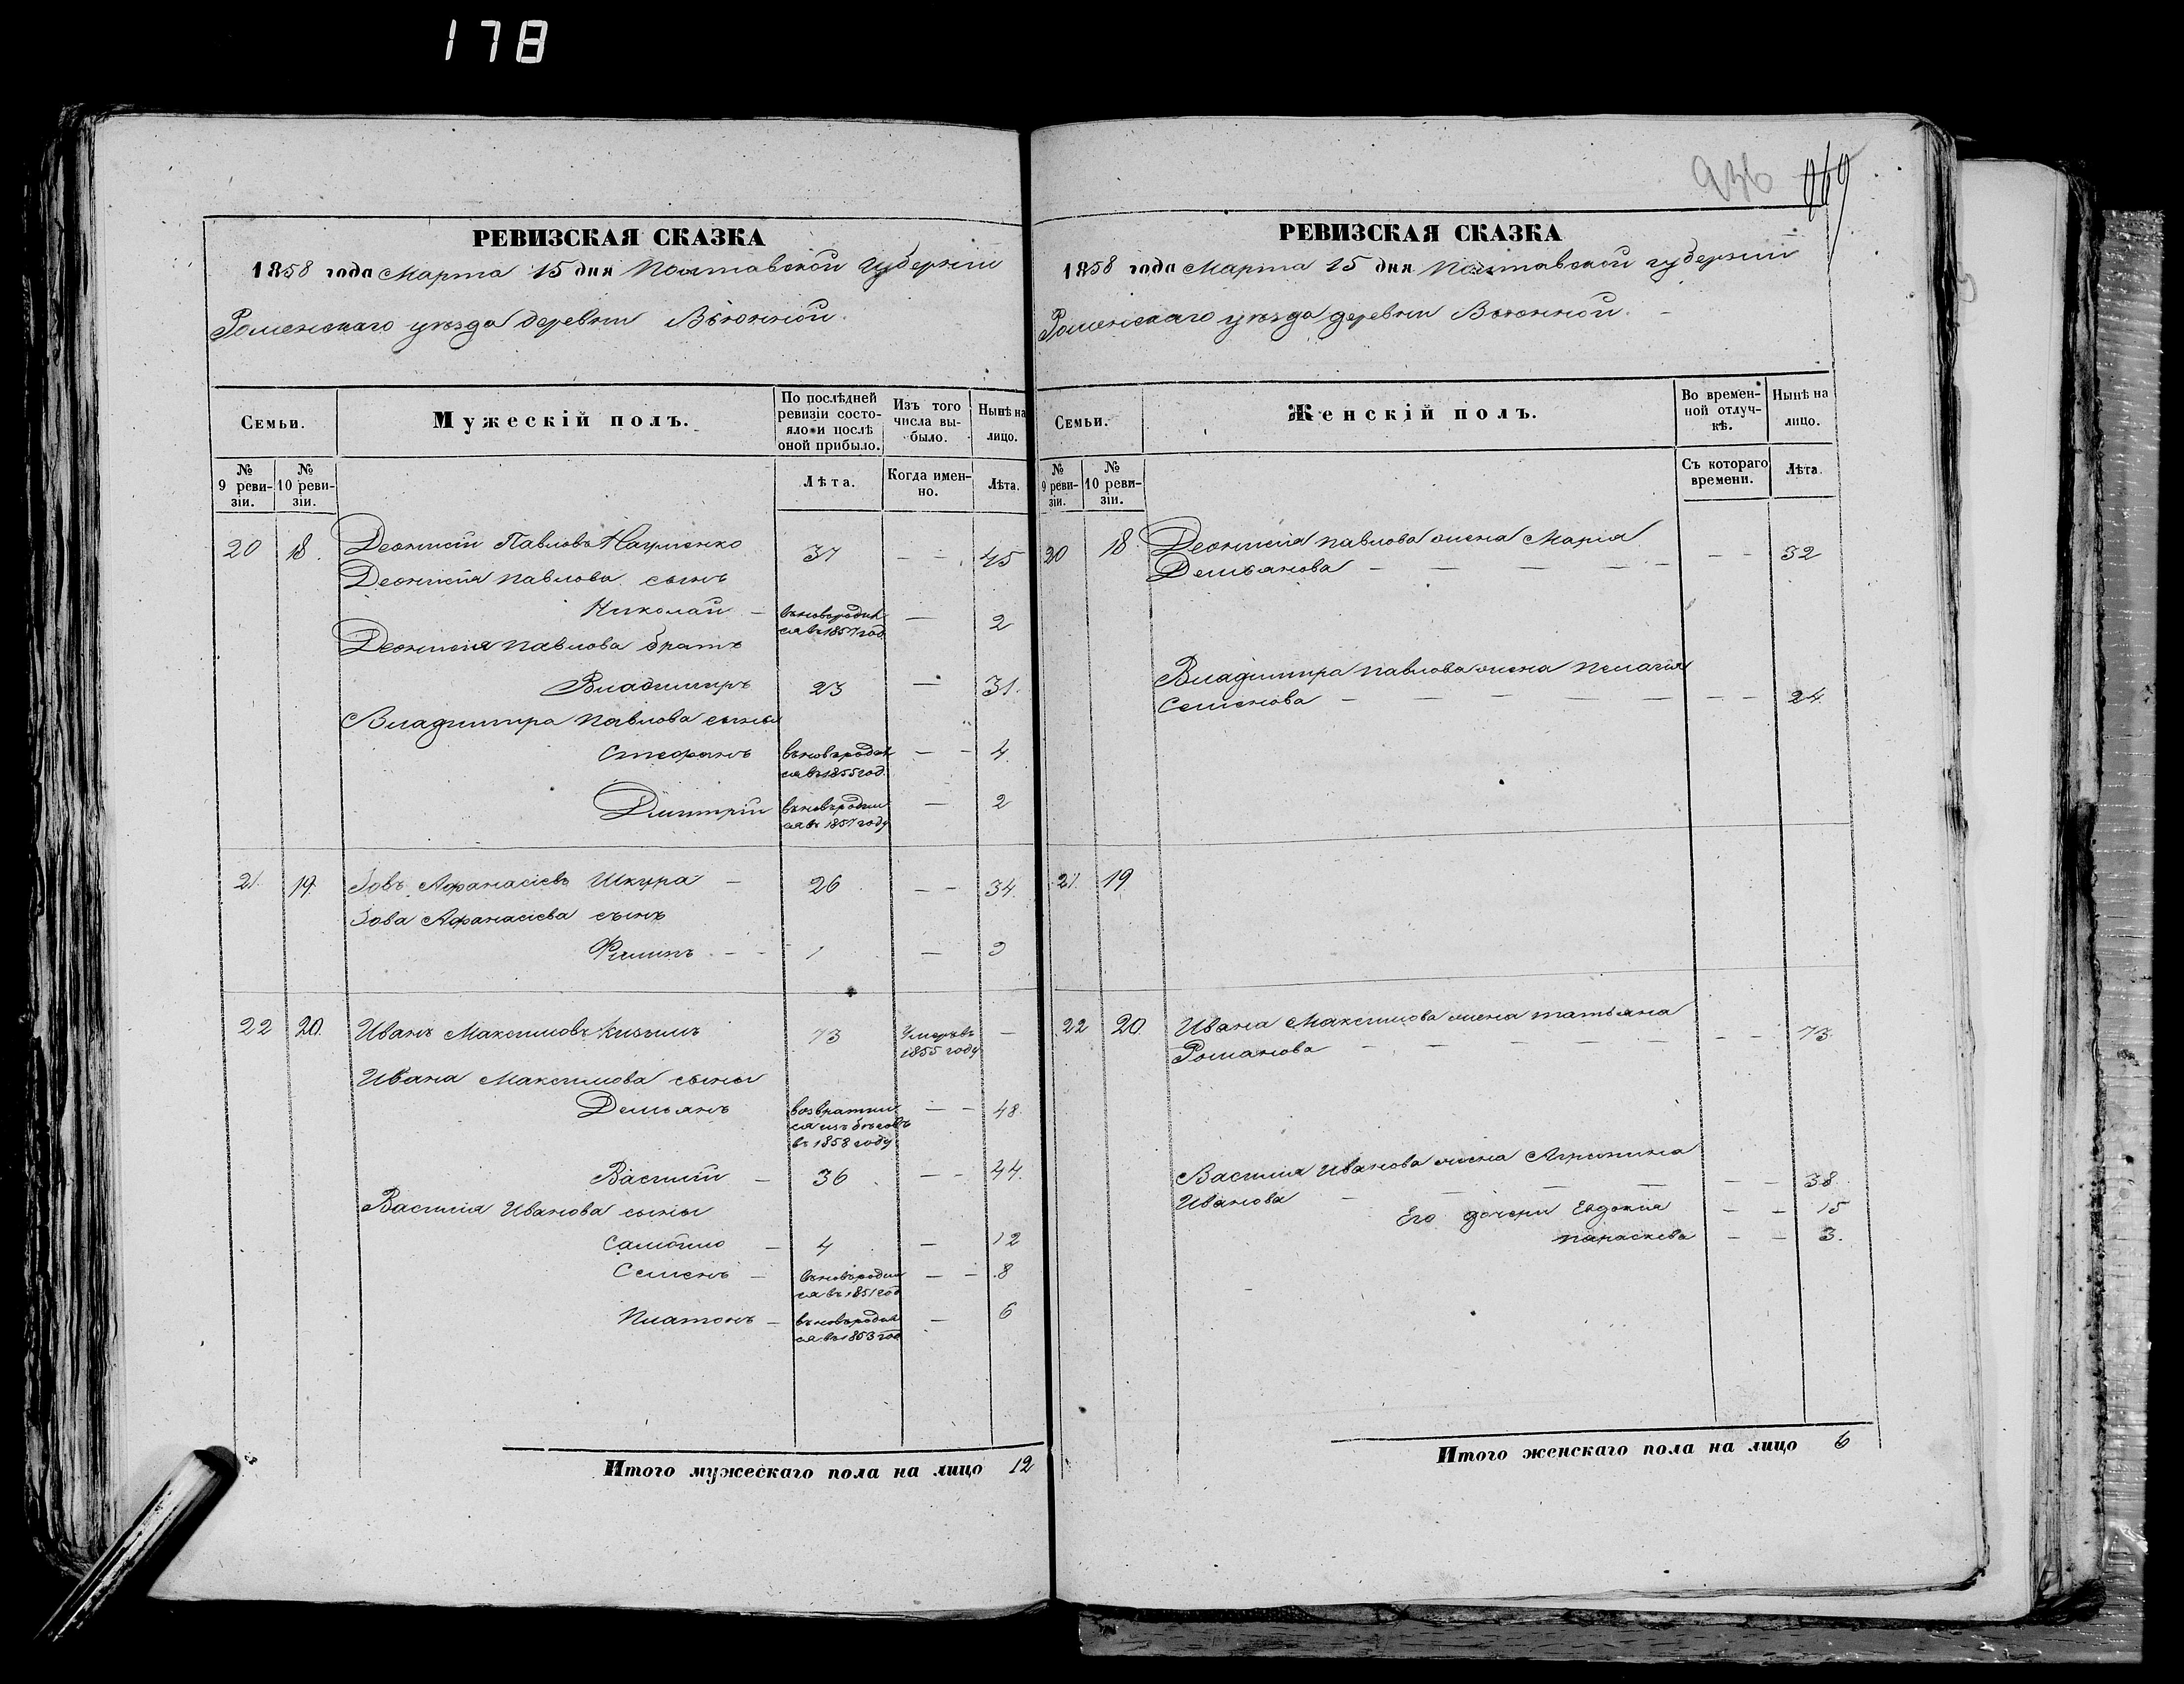 178
936 969
РЕВИЗСКАЯ СКАЗКА
1858 года Марта 15 дня Полтавской губерніи
Роменскаго уезда деревни Вьюнной.
Семьи.
Мужескій полъ.
По послѣдней ревизіи состо-
яло и послѣ оной прибыло.
Изъ того числа вы-
было.
Нынѣ на лицо.
№ 9 реви-
зіи.
№ 10 реви-
зіи.
Лѣта.
Когда имен-
но.
Лѣта.
20 18. Деонисій Павловъ Науменко 37 — — 45
Деонисія Павлова сынъ
Николай — вновьродил
ся въ 1857 год. — 2
Деонисія Павлова братъ
Владимиръ 23 — 31.
Владимира Павлова сыны
Стефанъ вновьродил
ся въ 1855 год. — — 4
Дмитрій вновьродил
ся въ 1857 году — 2
21. 19. Іовъ Афанасіевъ Шкура — 26 — — 34.
Іова Афанасіева сынъ
Филипъ — — 1 — 9
22 20. Иванъ Максимовъ 73 Умеръ въ
1855 году —
Ивана Максимова сыны
Демьянъ возвратил
ся изъ бѣговъ
въ 1858 году — — 48.
Василій — 36 — — 44.
Василія Иванова сыны
Самойло — 4 — 12
Семенъ — вновьродил
ся въ 1851 год — — 8
Платонъ — вновьродил
ся въ 1853 год — 6
Итого мужескаго пола на лицо 12
РЕВИЗСКАЯ СКАЗКА
1858 года Марта 15 дня Полтавской губерніи
Роменскаго уезда деревни Вьюнной.
Семьи.
Женскій полъ.
Во времен-
ной отлуч-
кѣ.
Нынѣ на лицо.
№ 9 реви-
зіи.
№ 10 реви-
зіи.
Съ котораго времени.
Лѣта.
20 18. Деонисія Павлова жена Марія
Демьянова — — — — — — 32
Владимира Павлова жена Пелагія
Семенова — — — — — — 24.
21. 19
22 20 Ивана Максимова жена татьяна
Романова — — — — — — 73.
Василія Иванова жена Агрипина
Иванова — — — — — — 38.
Его дочери Евдокія — — 15
параскева — — 3.
Итого женскаго пола на лицо 6